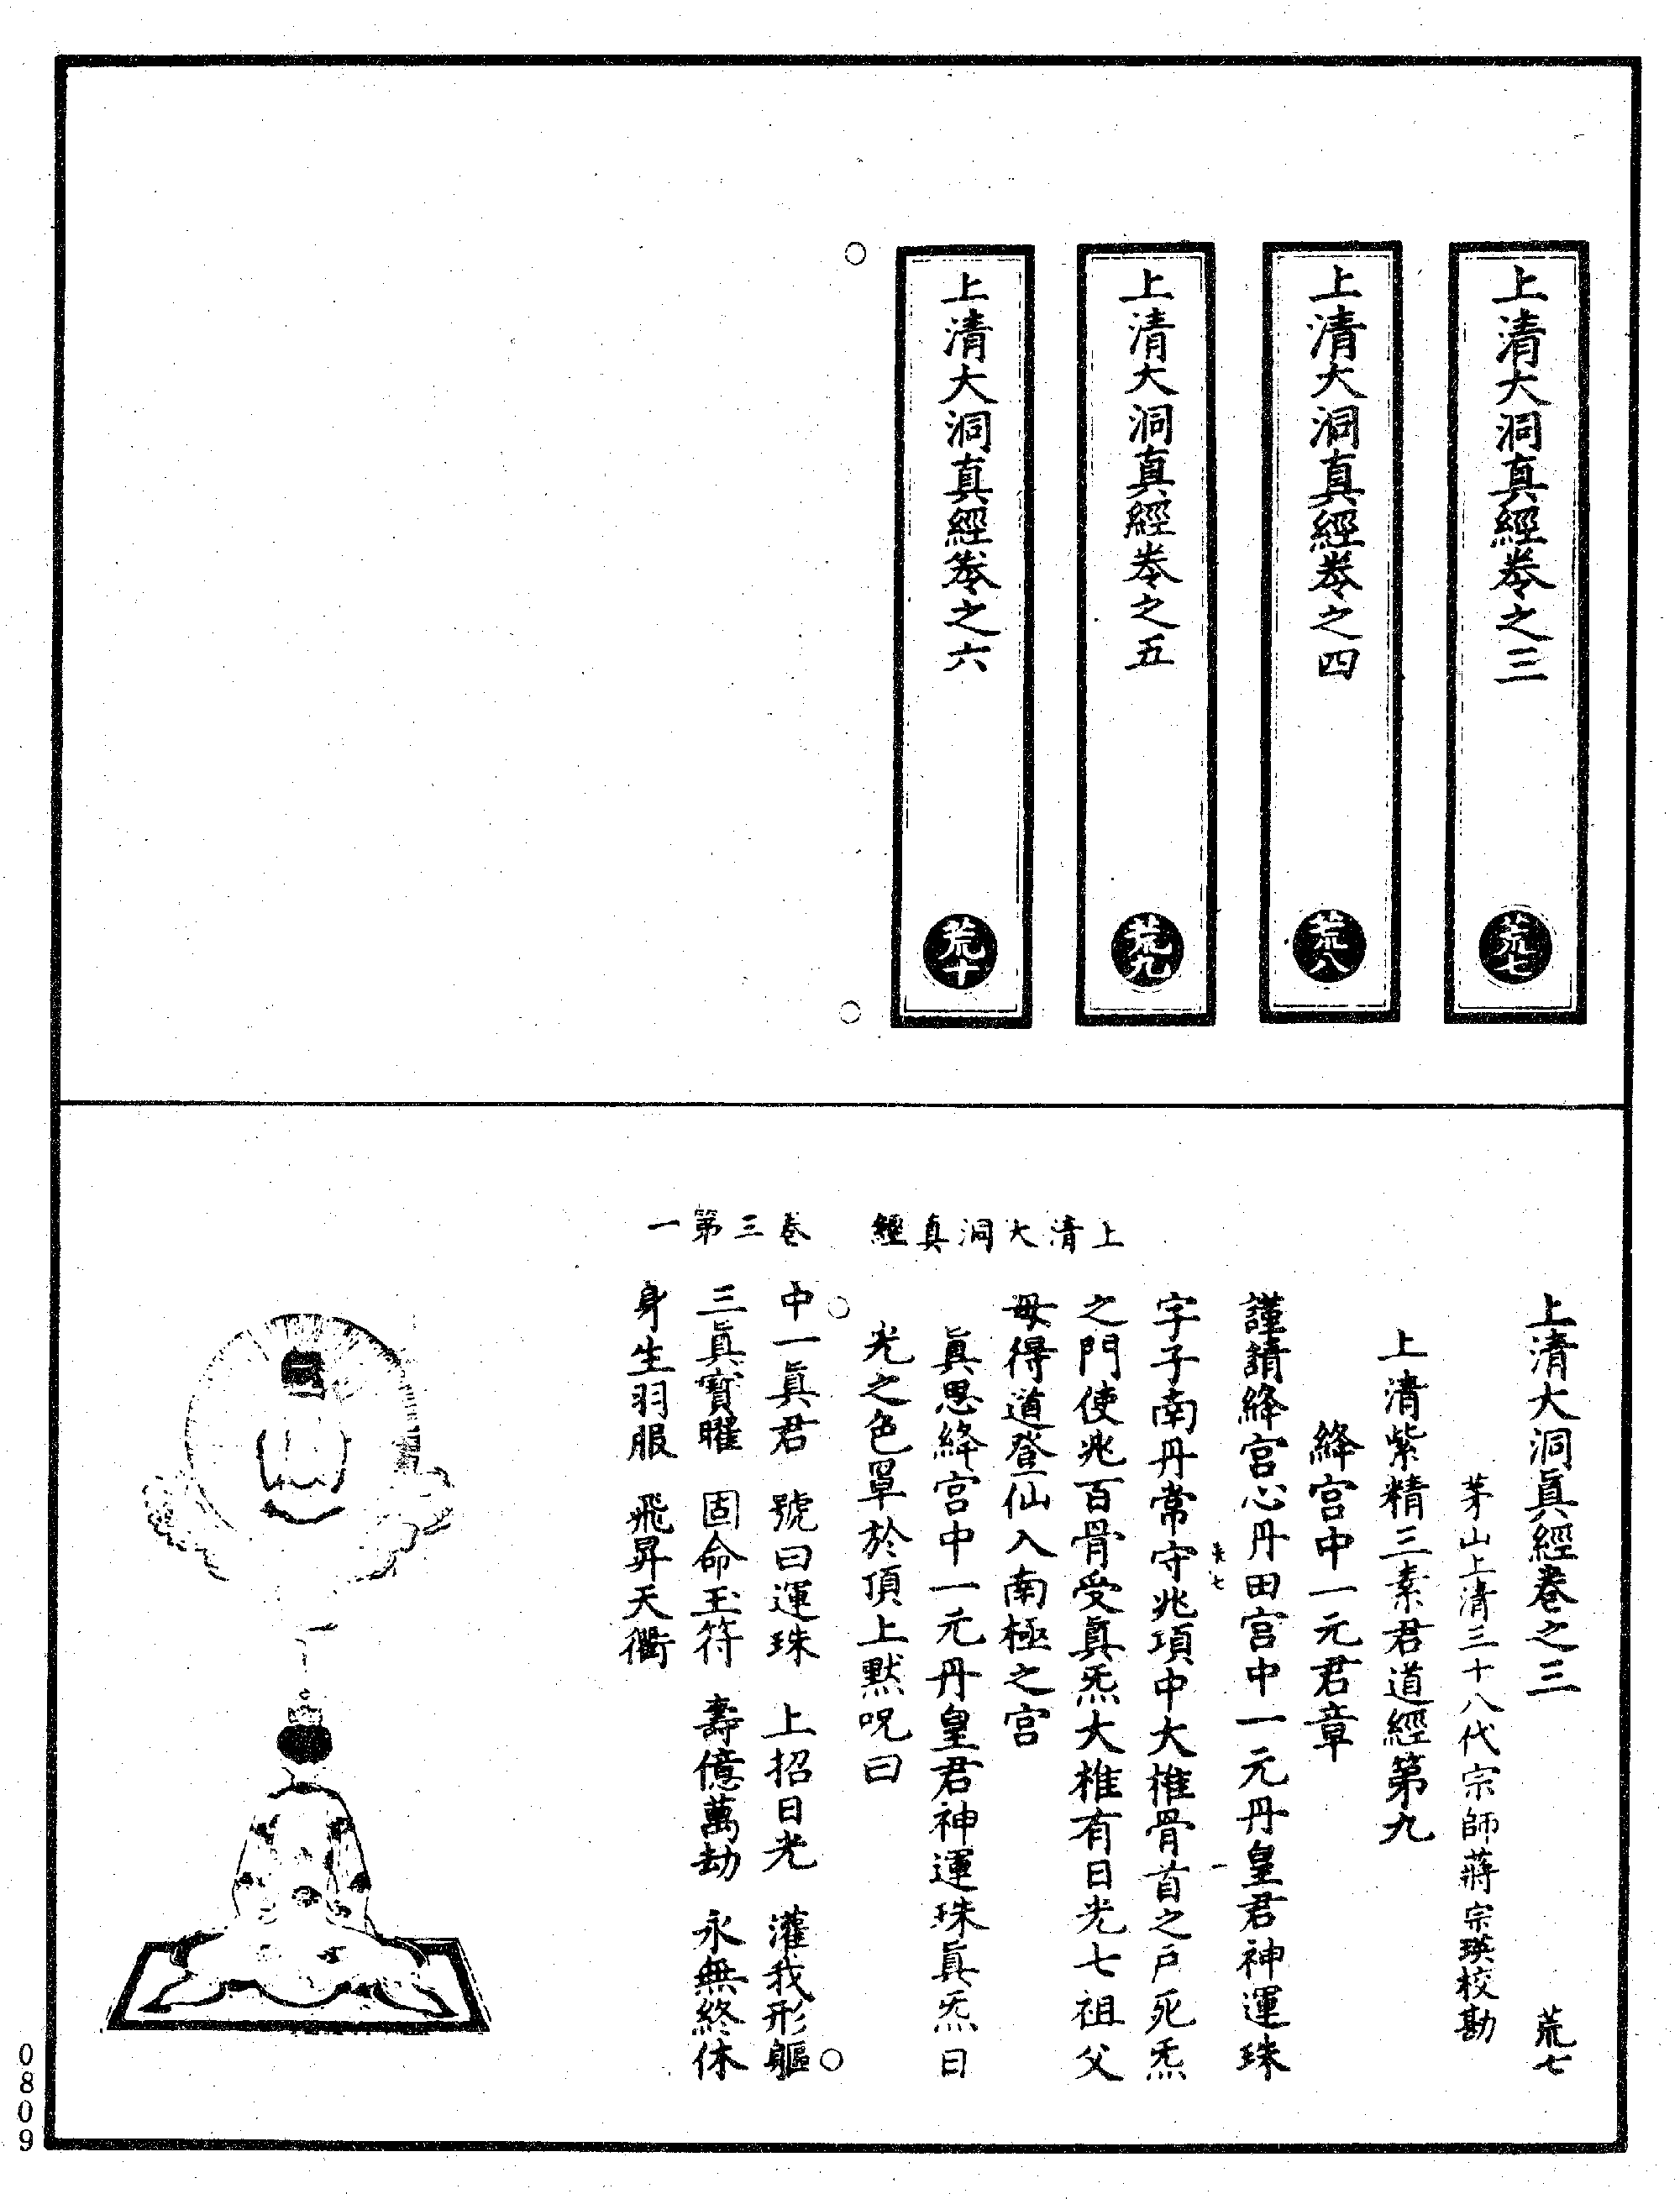 上清大洞真經卷之三
荒七
上清大洞真經卷之四
荒八
上清大洞真經卷之五
荒九
上清大洞真經卷之六
荒十
上清大洞眞經卷之三 荒七
茅山上清三十八代宗師蔣宗瑛校勘
上清紫精三素君道經第九
絳宮中一元君章
謹請絳宮心丹田宮中一元丹皇君神運珠
字子南丹常守兆項中大椎骨首之戶死炁
之門使兆百骨受眞炁大椎有日光七祖父
母得道登仙入南極之宮
眞思絳宮中一元丹皇君神運珠眞炁日
光之色罩於頂上默呪曰
上清大洞真經 卷三第一
中一眞君 號曰運珠 上招日光 灌我形軀
三眞寶曜 固命玉符 壽億萬劫 永無終休
身生羽服 飛昇天衢
0809